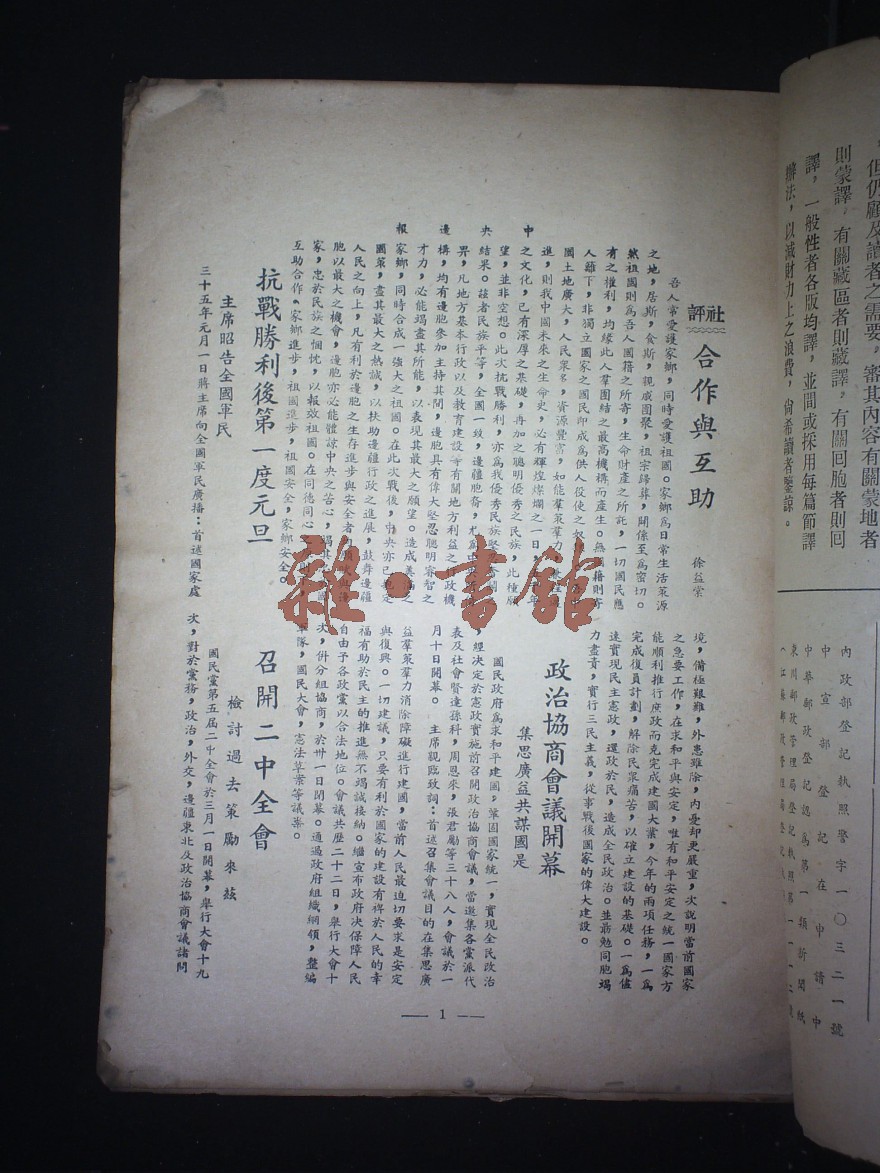 但仍顧及讀者之需要，審其內容有關蒙地者
則蒙譯，有關藏區者則藏譯，有關回胞者則回
譯，一般性者各版均譯，並間或採用每篇節譯
辦法，以減財力上之浪費，尚希讀者鑒諒。
內政部登記執照警字一〇三二一號
中宣部登記在申請中
中華郵政登記認為第一類新聞紙
東川郵政管理局登記執照第一一一二號
江蘇郵政管理局登記
社評
合作與互助
徐益棠
吾人常愛護家鄉，同時愛護祖國。家鄉爲日常生活策源
之地，居斯，食斯，親戚團聚，祖宗歸葬，關係至爲密切。
然祖國則爲吾人國籍之所寄，生命財產之所託，一切國民應
有之權利，均緣此人羣團結之最高機構而產生。無國籍則寄
人籬下，非獨立國家之國民即成爲供人役使之奴
國土地廣大，人民衆多，資源豐富，如能羣策羣力
進，則我中國未來之生命史，必有輝煌燦爛之一日，
中之文化，已有深厚之基礎，再加之聰明優秀之民族，此種願
望，並非空想。此次抗戰勝利，亦爲我優秀民族堅
央結果。茲者民族平等，全國一致，邊疆胞裔，尤爲
界，凡地方基本行政以及教育建設等有關地方利益之行政機
邊構，均有邊胞參加主持其間，邊胞具有偉大堅忍聰明睿智之
才力，必能竭盡其所能，以表現其最大之願望。造成美滿之
報家鄉，同時合成一強大之祖國。在此次戰後，中央亦已規定
國策，盡其最大之熱誠，以扶助邊疆行政之進展，鼓舞邊疆
人民之向上，凡有利於邊胞之生存進步與安全者
胞以最大之機會，邊胞亦必能體諒中央之苦心，竭其
家，忠於民族之悃忱，以報效祖國。在同德同心之
互助合作。家鄉進步，祖國進步，祖國安全，家鄉安全。
抗戰勝利後第一度元旦
主席昭告全國軍民
三十五年元月一日蔣主席向全國軍民廣播：首述國家處
境，備極艱難，外患雖除，內憂却更嚴重，次說明當前國家
之急要工作，在求和平與安定，唯有和平安定之統一國家方
能順利推行庶政而克完成建國大業，今年的兩項任務，一爲
完成復員計劃，解除民衆痛苦，以確立建設的基礎。一爲儘
速實現民主憲政，還政於民，造成全民政治。並勗勉同胞竭
力盡責，實行三民主義，從事戰後國家的偉大建設。
政治協商會議開幕
集思廣益共謀國是
國民政府爲求和平建國，鞏固國家統一，實現全民政治
，經決定於憲政實施前召開政治協商會議，當邀集各黨派代
表及社會賢達孫科，周恩來，張君勱等三十八人，會議於一
月十日開幕。　主席親臨致詞：首述召集會議目的在集思廣
益羣策羣力消除障礙進行建國，當前人民最迫切要求是安定
與復興。一切建議，只要有利於國家的建設有裨於人民的幸
福有助於民主的推進無不竭誠接納。繼宣布政府决保障人民
自由予各政黨以合法地位。會議共歷二十二日，舉行大會十
次，併分組協商，於卅一日閉幕。通過政府組織綱領，整編
軍隊，國民大會，憲法草案等議案。
召開二中全會
檢討過去策勵來茲
國民黨第五屆二中全會於三月一日開幕，舉行大會十九
次，對於黨務，政治，外交，邊疆東北及政治協商會議諸問
— 1 —
雜·書館